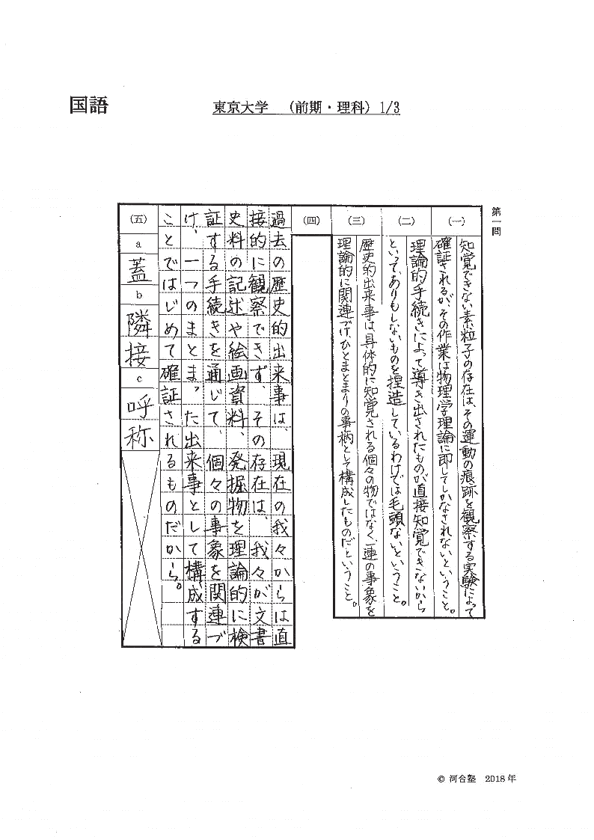 国語
東京大学 (前期・理科) 1/3
第一問
(一)
知覚できない素粒子の存在は、その運動の痕跡を観察する実験によって
確証されるが、その作業は物理学理論に即してしかなされないということ。
(二)
理論的手続きによって導き出されたものが直接知覚できないから
といって、ありもしないものを捏造しているわけでは毛頭ないということ。
(三)
歴史的出来事は、具体的に知覚される個々の物ではなく、一連の事象を
理論的に関連づけ、ひとまとまりの事柄として構成したものだということ。
(四)
過去の歴史的出来事は、現在の我々からは直
接的に観察できず、その存在は、我々が文書
史料の記述や絵画資料、発掘物を理論的に検
証する手続きを通じて、個々の事象を関連づ
け、一つのまとまった出来事として構成する
ことではじめて確証されるものだから。
(五)
a 蓋
b 隣接
c 呼称
© 河合塾 2018年